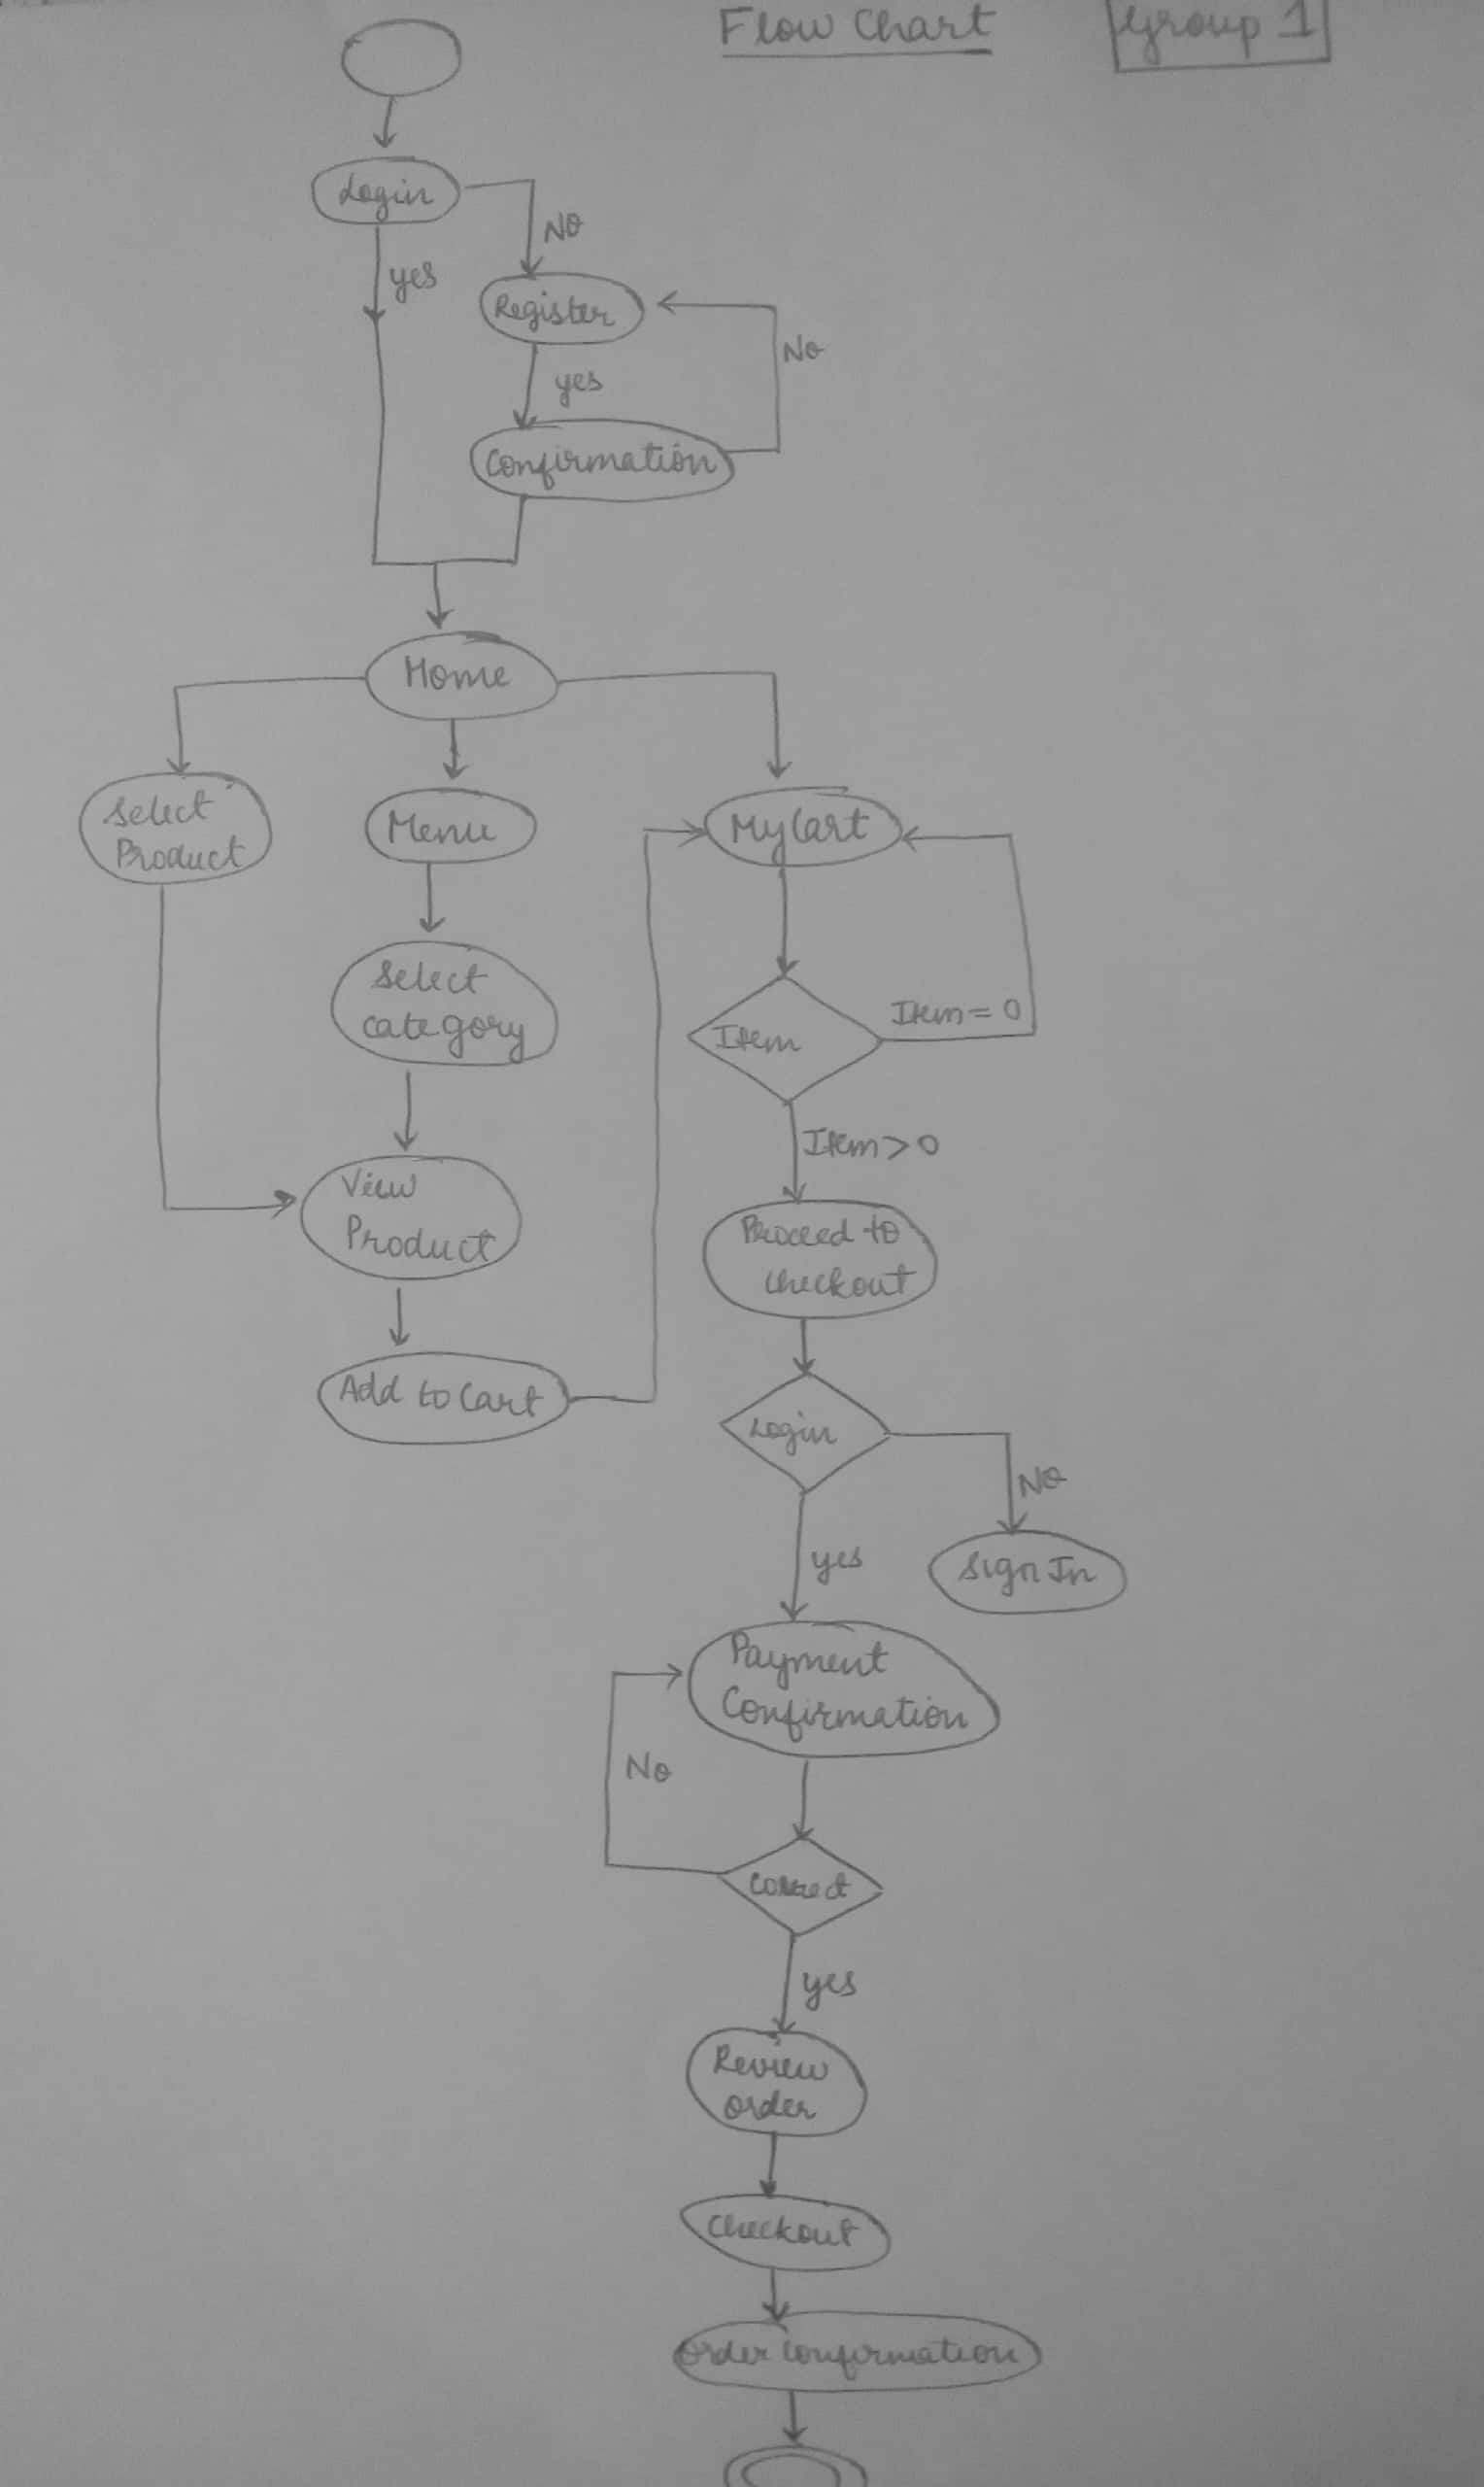 Flow Chart
Group 1
Login
NO
yes
Register
No
yes
Confirmation
Home
Select
Product
Menu
My Cart
Select
category
Item
Item = 0
Item > 0
View
Product
Proceed to
checkout
Add to Cart
Login
NO
yes
Sign In
Payment
Confirmation
No
correct
yes
Review
order
checkout
order confirmation